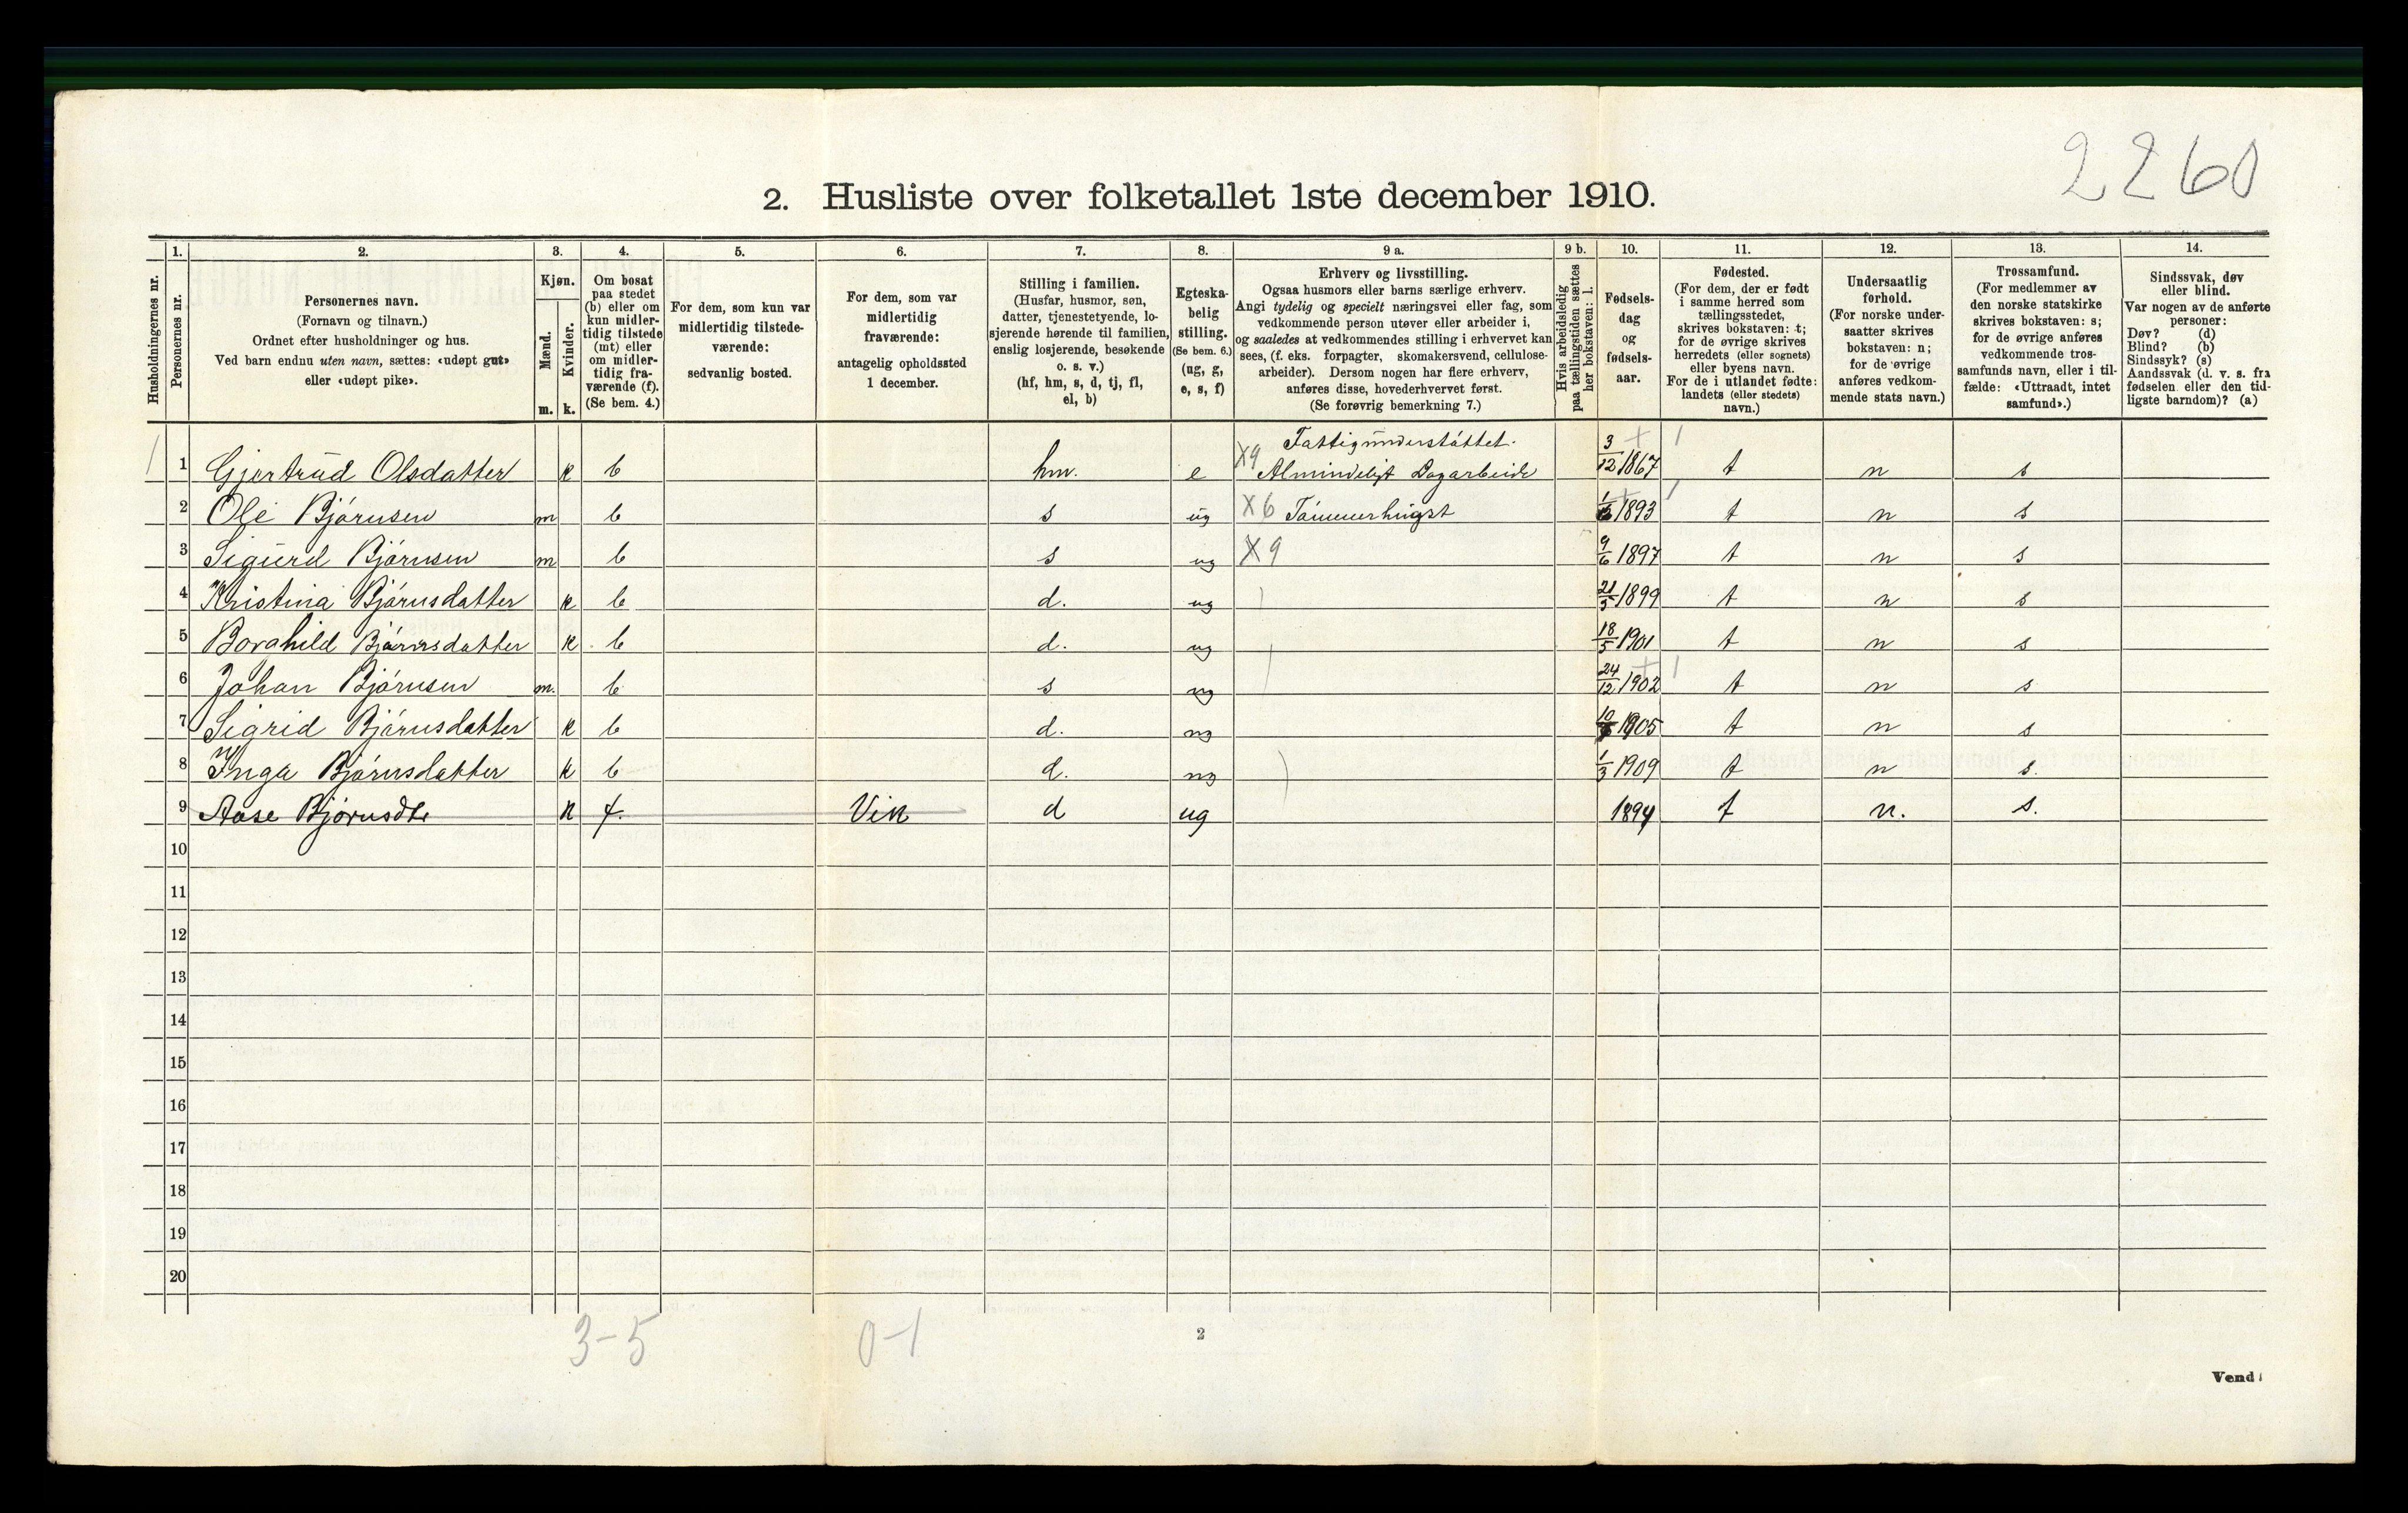 2260
2. Husliste over folketallet 1ste december 1910.
1. 2. 3. 4. 5. 6. 7. 8. 9 a. 9 b. 10. 11. 12. 13. 14.
Husholdningernes nr.
Personernes nr.
Personernes navn.
(Fornavn og tilnavn.)
Ordnet efter husholdninger og hus.
Ved barn endnu uten navn, sættes: «udøpt gut»
eller «udøpt pike».
Kjøn.
Mænd.
Kvinder.
m. k.
Om bosat
paa stedet
(b) eller om
kun midler-
tidig tilstede
(mt) eller
om midler-
tidig fra-
værende (f).
(Se bem. 4.)
For dem, som kun var
midlertidig tilstede-
værende:
sedvanlig bosted.
For dem, som var
midlertidig
fraværende:
antagelig opholdssted
1 december.
Stilling i familien.
(Husfar, husmor, søn,
datter, tjenestetyende, lo-
sjerende hørende til familien,
enslig losjerende, besøkende
o. s. v.)
(hf, hm, s, d, tj, fl,
el, b)
Egteska-
belig
stilling.
(Se bem. 6.)
(ug, g,
e, s, f)
Erhverv og livsstilling.
Ogsaa husmors eller barns særlige erhverv.
Angi tydelig og specielt næringsvei eller fag, som
vedkommende person utøver eller arbeider i,
og saaledes at vedkommendes stilling i erhvervet kan
sees, (f. eks. forpagter, skomakersvend, cellulose-
arbeider). Dersom nogen har flere erhverv,
anføres disse, hovederhvervet først.
(Se forøvrig bemerkning 7.)
Hvis arbeidsledig
paa tællingstiden sættes
her bokstaven: l.
Fødsels-
dag
og
fødsels-
aar.
Fødested.
(For dem, der er født
i samme herred som
tællingsstedet,
skrives bokstaven: t;
for de øvrige skrives
herredets (eller sognets)
eller byens navn.
For de i utlandet fødte:
landets (eller stedets)
navn.)
Undersaatlig
forhold.
(For norske under-
saatter skrives
bokstaven: n;
for de øvrige
anføres vedkom-
mende stats navn.)
Trossamfund.
(For medlemmer av
den norske statskirke
skrives bokstaven: s;
for de øvrige anføres
vedkommende tros-
samfunds navn, eller i til-
fælde: «Uttraadt, intet
samfund».)
Sindssvak, døv
eller blind.
Var nogen av de anførte
personer:
Døv? (d)
Blind? (b)
Sindssyk? (s)
Aandssvak (d. v. s. fra
fødselen eller den tid-
ligste barndom)? (a)
Fattigunderstøttet.
1 1 Gjertrud Olsdatter k b hm. e X9 Almindeligt Dagarbeide 3/12 1867 t n s
2 Ole Bjørnsen m b s ug X6 Tømmerhugst 1893 t n s
3 Sigurd Bjørnsen m b s ug X9 9/6 1897 t n s
4 Kristina Bjørnsdatter k b d. ug 21/5 1899 t n s
5 Borghild Bjørnsdatter k b d. ug 18/5 1901 t n s
6 Johan Bjørnsen m. b s ug 24/12 1902 t n s
7 Sigrid Bjørnsdatter k b d. ug 1905 t n s
8 Inga Bjørnsdatter k b d. ug 1/3 1909 t n s.
9 Aase Bjørnsdtr k f. Vik d ug 1894 t n. s.
10
11
12
13
14
15
16
17
18
19
20
3-5 0-1
2
Vend!